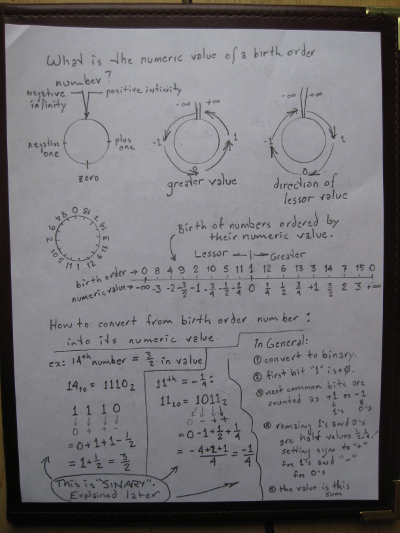 What is the numeric value of a birth order
number?
negative infinity
positive infinity
negative one
plus one
zero
-∞ +∞
-1 1
0
greater value
-∞ +∞
-1 1
0
direction of
lessor value
Birth of numbers ordered by
their numeric value.
Lessor ←1→ Greater
birth order → 0 8 4 9 2 10 5 11 1 12 6 13 3 14 7 15 0
numeric value → -∞ -3 -2 -3/2 -1 -3/4 -1/2 -1/4 0 1/4 1/2 3/4 +1 3/2 2 3 +∞
How to convert from birth order number
into its numeric value:
ex: 14th number = 3/2 in value
14₁₀ = 1110₂
1 1 1 0
0 + + -
= 0+1+1-1/2
= 1+1/2 = 3/2
11th = -1/4:
11₁₀ = 1011₂
0 - + +
= 0-1+1/2+1/4
= -4+2+1/4 = -1/4
This is "SINARY".
Explained later
In General:
① convert to binary.
② first bit "1" is +0.
③ next common bits are
counted as +1 or -1
1's 0's
④ remaing 1's and 0's
are half values 1/2, 1/4,
setting sign to "+"
for 1's and "-"
for 0's
⑤ the value is this
sum